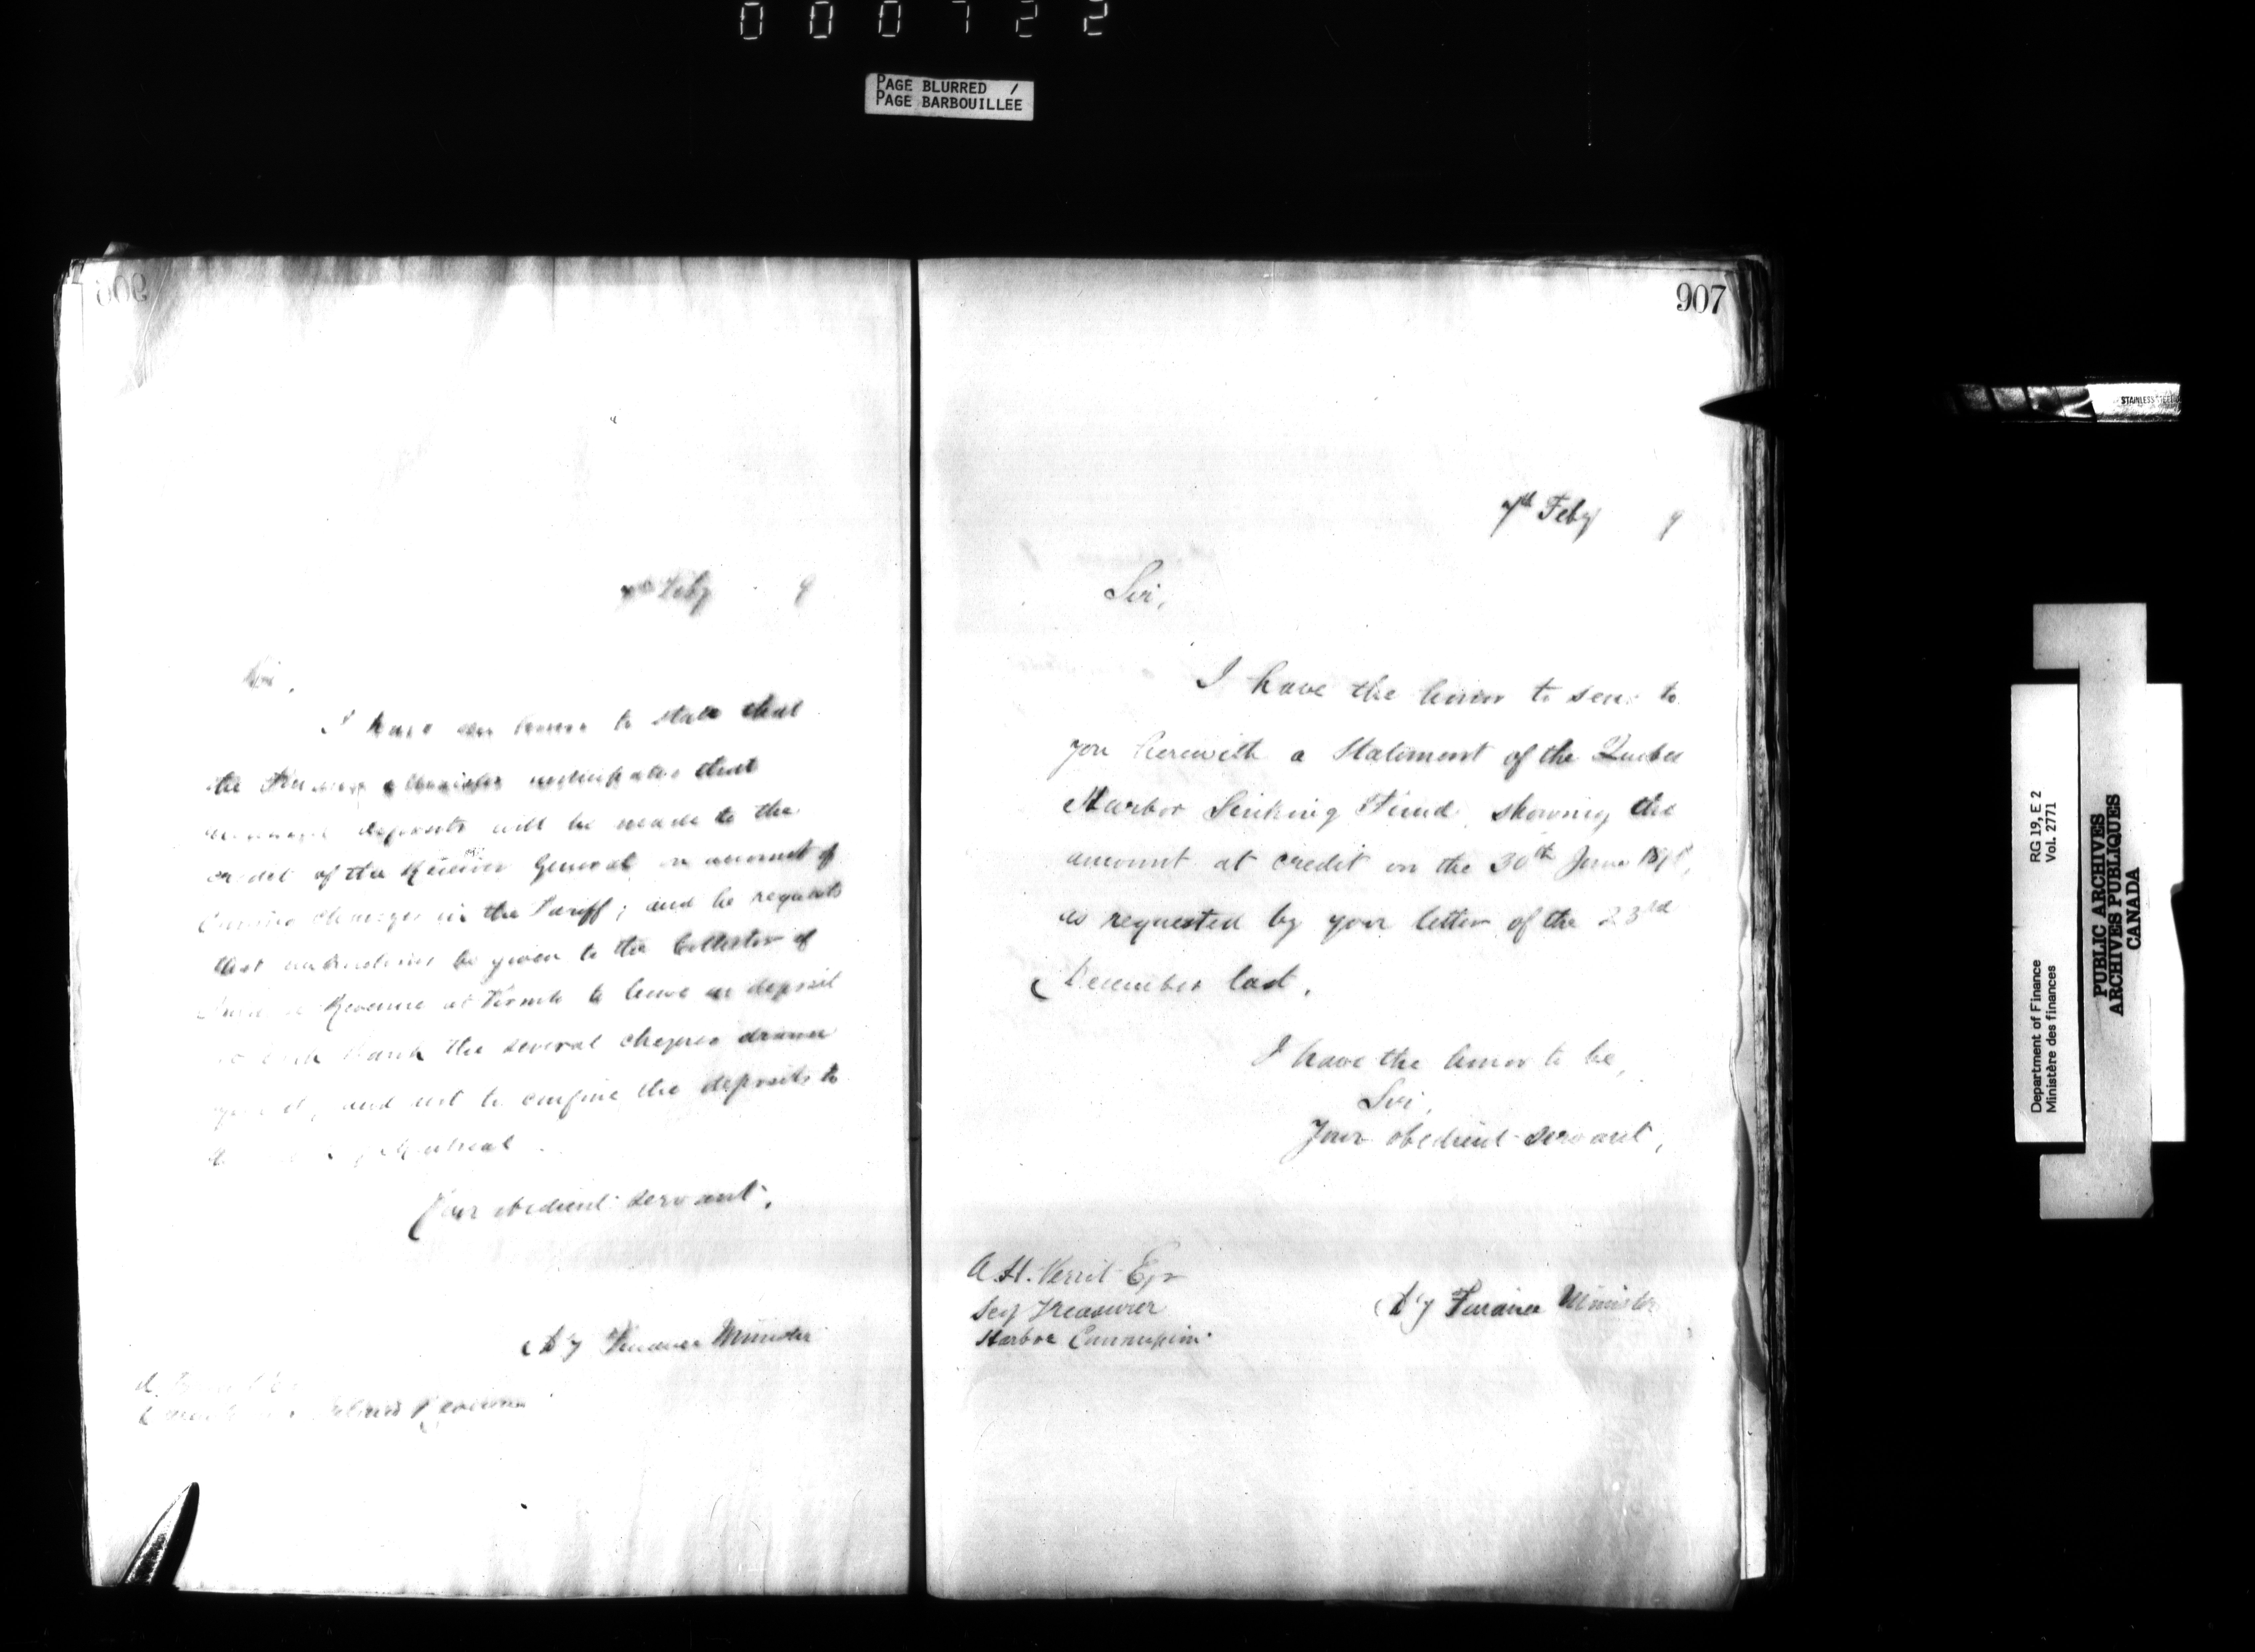 000722
PAGE BLURRED /
PAGE BARBOUILLÉE
906
7th Feby 9
Sir,
I have the honor to state that
the Finance Minister anticipates that
deposits will be made to the
credit of the Receiver General on account of
changes in the Tariff; and he requests
that instructions be given to the Collector of
Revenue at Toronto to leave on deposit
Bank the several cheques drawn
and not to confine the deposits to
Montreal
Your obedient servant,
Dy Finance Minister
Inland Revenue
907
7th Feby 9
Sir,
I have the honor to send to
you herewith a Statement of the Quebec
Harbor Sinking Fund, showing the
amount at credit on the 30th June
as requested by your letter of the 23rd
December last.
I have the honor to be,
Sir,
Your obedient servant,
A. H. Verret Esqr
Secy Treasurer
Harbor Commission
Dy Finance Minister
STAINLESS STEEL
Department of Finance RG 19, E 2
Ministère des finances Vol. 2771
PUBLIC ARCHIVES
ARCHIVES PUBLIQUES
CANADA